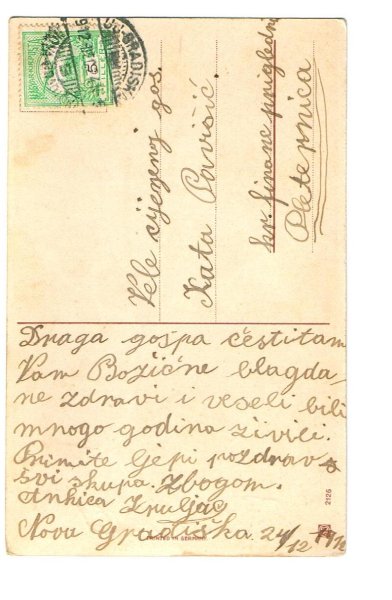 Vele cijenjenoj gos.
Kata Pavišić
kr. financ priglednik
Pleternica
Draga gospa čestitam
Vam Božićne blagda
ne zdravi i veseli bili
mnogo godina živili.
Primite ljepi pozdrav
svi skupa. Zbogom.
Ankica
Nova Gradiška 24/12 1912
PRINTED IN GERMANY
2126